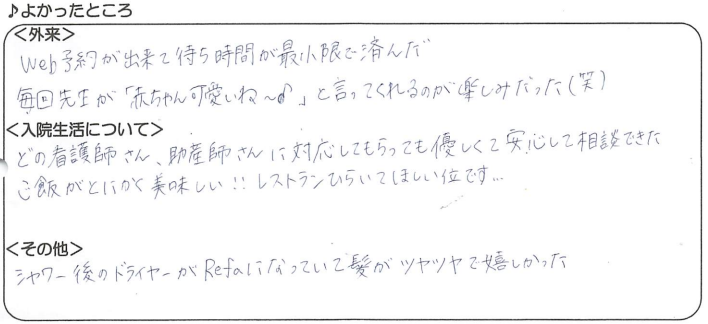 ♪よかったところ
<外来>
Web予約が出来て待ち時間が最小限で済んだ
毎回先生が「赤ちゃん可愛いね〜♪」と言ってくれるのが楽しみだった(笑)
<入院生活について>
どの看護師さん、助産師さんに対応してもらっても優しくて安心して相談できた
ご飯がとにかく美味しい!! レストランひらいてほしい位です…
<その他>
シャワー後のドライヤーがRefaになっていて髪がツヤツヤで嬉しかった